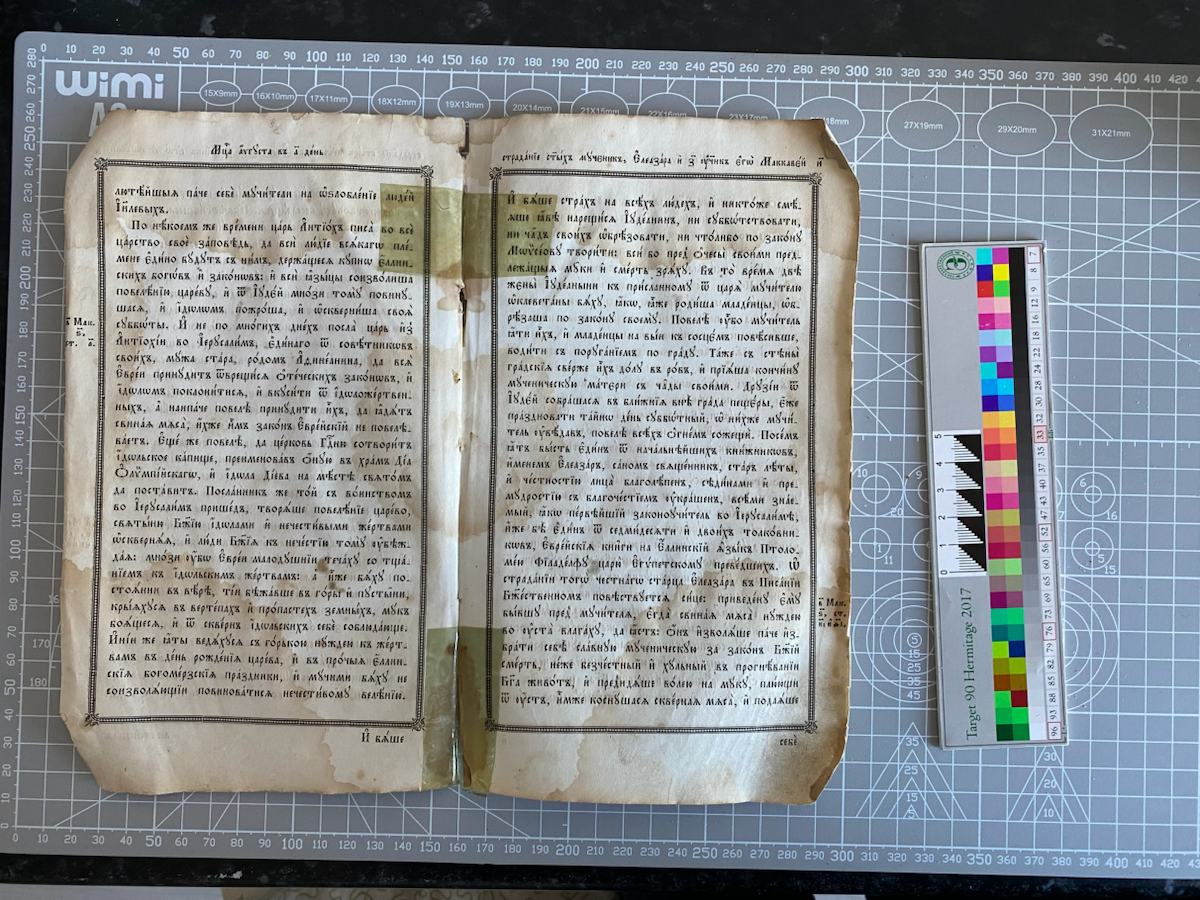 Мц҃а а҆́ѵгꙋста въ а҃ де́нь.
лютѣ́йшыѧ па́че себѐ мꙋчи́тели на ѡ҆ѕлобле́нїе люде́й
І҆и҃левыхъ.
По нѣ́коем же вре́мени ца́рь А҆нтїо́хъ писа̀ во всѐ
ца́рство своѐ за́повѣдь, да всѝ лю́дїе всѧ́кагѡ пле́-
мене є҆ди́но бꙋ́дꙋтъ съ ни́мъ, держа́щесѧ кꙋ́пнѡ є҆́ллин-
скихъ богѡ́въ и҆ зако́нѡвъ: и҆ всѝ ꙗ҆зы́цы соизво́лиша
повелѣ́нїю царе́вꙋ, и҆ ѿ І҆ꙋде́й мно́зи томꙋ̀ повинꙋ́-
шасѧ, и҆ і҆́дѡлѡмъ пожро́ша, и҆ ѡ҆скверни́ша своѧ̑
сꙋббѡ̑ты. И҆ не по мно́гихъ дне́хъ посла̀ ца́рь и҆з̾
А҆нтїохі́и во І҆ерꙋсали́мъ, є҆ди́наго ѿ совѣ́тникѡвъ
свои́хъ, мꙋ́жа ста́ра, ро́домъ А҆ѳине́анина, да всѧ̑
Є҆вре́и принꙋ́дитъ ѿврещи́сѧ ѻ҆те́ческихъ зако́нѡвъ, и҆
і҆́дѡлѡмъ поклони́тисѧ, и҆ вкꙋси́ти ѿ і҆дѡложе́ртвен-
ныхъ, а҆ наипа́че повелѣ̀ принꙋ́дити и҆̀хъ, да ꙗ҆дѧ́тъ
свина̑ѧ мѧса̀, и҆̀хже и҆̀мъ зако́нъ Є҆вре́йскїй не повелѣ-
ва́етъ. Е҆ще́ же повелѣ̀, да це́рковь Гдⷭ҇ню сотвори́тъ
і҆́дѡльское ка́пище, преименова́въ ѻ҆́нꙋю въ хра́мъ Ді́а
Ѻ҆лѷмпі́йскагѡ, и҆ і҆́дѡла Ді́ева на мѣ́стѣ свѧто́мъ
да поста́витъ. Посла́нникъ же то́й съ во́инствомъ
во І҆ерꙋсали́мъ прише́дъ, творѧ́ше повелѣ́нїе царе́во,
свѧты́ню Бж҃їю і҆́дѡлами и҆ нечести́выми же́ртвами
ѡ҆сквернѧ́ѧ, и҆ лю́ди Бж҃їѧ къ нече́стїю томꙋ̀ ᲂу҆бѣж-
да́ѧ: мно́зи ᲂу҆́бѡ Є҆вре́и малодꙋ́шнїи теча́хꙋ со тща́-
нїемъ къ і҆́дѡльскимъ же́ртвамъ: а҆ и҆̀же бѧ́хꙋ по-
стоѧ́нни въ вѣ́рѣ, ті́и бѣжа́вше въ го́ры и҆ пꙋсты̑ни,
крыѧ́хꙋсѧ въ верте́пахъ и҆ про́пастехъ земны́хъ, мꙋ́къ
боѧ́щесѧ, и҆ ѿ скве́рнъ і҆́дѡльскихъ себѐ соблюда́юще.
И҆ні́и же ꙗ҆́ты ведѧ́хꙋсѧ съ го́рькою нꙋ́ждею къ же́рт-
вамъ въ де́нь рожде́нїѧ царе́ва, и҆ въ про́чыѧ є҆́ллин-
скїѧ богоме́рзскїѧ пра́здники, и҆ мꙋ́чими бѧ́хꙋ не
соизволѧ́ющїи повинова́тисѧ нечести́вомꙋ велѣ́нїю.
И҆ бѧ́ше
в҃ Мак.
ѕ҃.
ст. а҃.
страда́нїе ст҃ы́хъ мꙋ́ченикъ, Є҆леаза́ра и҆ з҃ ᲂу҆ч҃нкъ є҆гѡ̀ Маккаве́й
И҆ бѧ́ше стра́хъ на всѣ́хъ лю́дехъ, и҆ никто́же смѣ-
ѧ́ше ꙗ҆́вѣ нарещи́сѧ І҆ꙋде́анинъ, ни сꙋббѡ́тствовати,
ни ча̑дъ свои́хъ ѡ҆брѣ́зовати, ни что́либо по зако́нꙋ
Мѡѷсе́овꙋ твори́ти: всѝ бо пред̾ ѻ҆чесы̀ свои́ми пред-
лежа́щыѧ мꙋ́ки и҆ сме́рть зрѧ́хꙋ. Въ то̀ вре́мѧ двѣ̀
жены̑ І҆ꙋдє́аныни къ при́сланномꙋ ѿ царѧ̀ мꙋчи́телю
ѡ҆клевета́ны бѧ́хꙋ, ꙗ҆́кѡ, ꙗ҆̀же роди́ша младе́нцы, ѡ҆б-
рѣ́заша по зако́нꙋ своемꙋ̀. Повелѣ̀ ᲂу҆̀бо мꙋчи́тель
ꙗ҆́ти и҆̀хъ, и҆ младе́нцы на вы́и къ сосце́мъ повѣ́сивше,
води́ти съ порꙋга́нїемъ по гра́дꙋ. Та́же съ стѣны̀
гра́дскїѧ све́рже и҆̀хъ до́лꙋ въ ро́въ, и҆ прїѧ́ша кончи́нꙋ
мꙋ́ченическꙋю ма́тери съ ча̑ды свои́ми. Дрꙋзі́и ѿ
І҆ꙋде́й собра́шасѧ въ бли́жнїѧ внѣ̀ гра́да пеще́ры, є҆́же
пра́здновати та́йнѡ де́нь сꙋббѡ́тный, ѡ҆ ни́хже мꙋчи́-
тель ᲂу҆вѣ́давъ, повелѣ̀ всѣ́хъ ѻ҆гне́мъ сожещѝ. Посе́мъ
ꙗ҆́тъ бы́сть є҆ди́нъ ѿ нача́льнѣйшихъ кни́жникѡвъ,
и҆́менемъ Є҆леаза́ръ, са́номъ свѧще́нникъ, ста́ръ лѣ́ты,
и҆ че́стностїю лица̀ благолѣ́пенъ, сѣди́нами и҆ пре-
мꙋ́дростїю съ благоче́стїемъ ᲂу҆кра́шенъ, всѣ́ми зна́е-
мый, ꙗ҆́кѡ первѣ́йшїй законоꙋчи́тель во І҆ерꙋсали́мѣ,
и҆́же бѣ̀ є҆ди́нъ ѿ седми́десѧти и҆ двои́хъ толко́вни-
кѡвъ, Є҆вре́йскїѧ кни̑ги на є҆́ллинскїй ѧ҆зы́къ Птоло-
ме́ю Фїладе́лфꙋ царю̀ Є҆гѵ́петскомꙋ преве́дшихъ. Ѡ҆
страда́нїи тогѡ̀ честна́гѡ ста́рца Є҆леаза́ра въ Писа́нїи
Бж҃е́ственномъ повѣствꙋ́етсѧ си́це: приведе́нꙋ є҆мꙋ̀
бы́вшꙋ пред̾ мꙋчи́телѧ, є҆гда̀ свина̑ѧ мѧса̀ нꙋ́ждею
во ᲂу҆ста̀ влага́хꙋ, да ꙗ҆́стъ: ѻ҆́нъ и҆зволѧ́ше па́че и҆з-
бра́ти себѣ̀ сла́внꙋю мꙋ́ченическꙋю за зако́нъ Бж҃їй
сме́рть, не́же безче́стный и҆ хꙋ́льный въ прогнѣ́ванїи
Бг҃а живо́тъ, и҆ предидѧ́ше во́лею на мꙋ́кꙋ, плю́ющи
ѿ ᲂу҆́стъ, и҆̀мже коснꙋ́шасѧ скве́рнаѧ мѧса̀, и҆ подаѧ́ше
себѐ
Мак.
ст.
WiMi
Target 90 Hermitage 2017